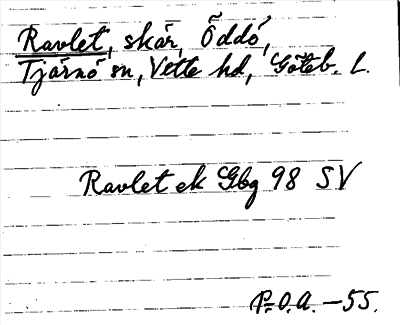 Ravlet, skär, Öddö,
Tjärnö sn, Vette hd, Göteb. L.
Ravlet ek Gbg 98 SV
P.O.A. -55.